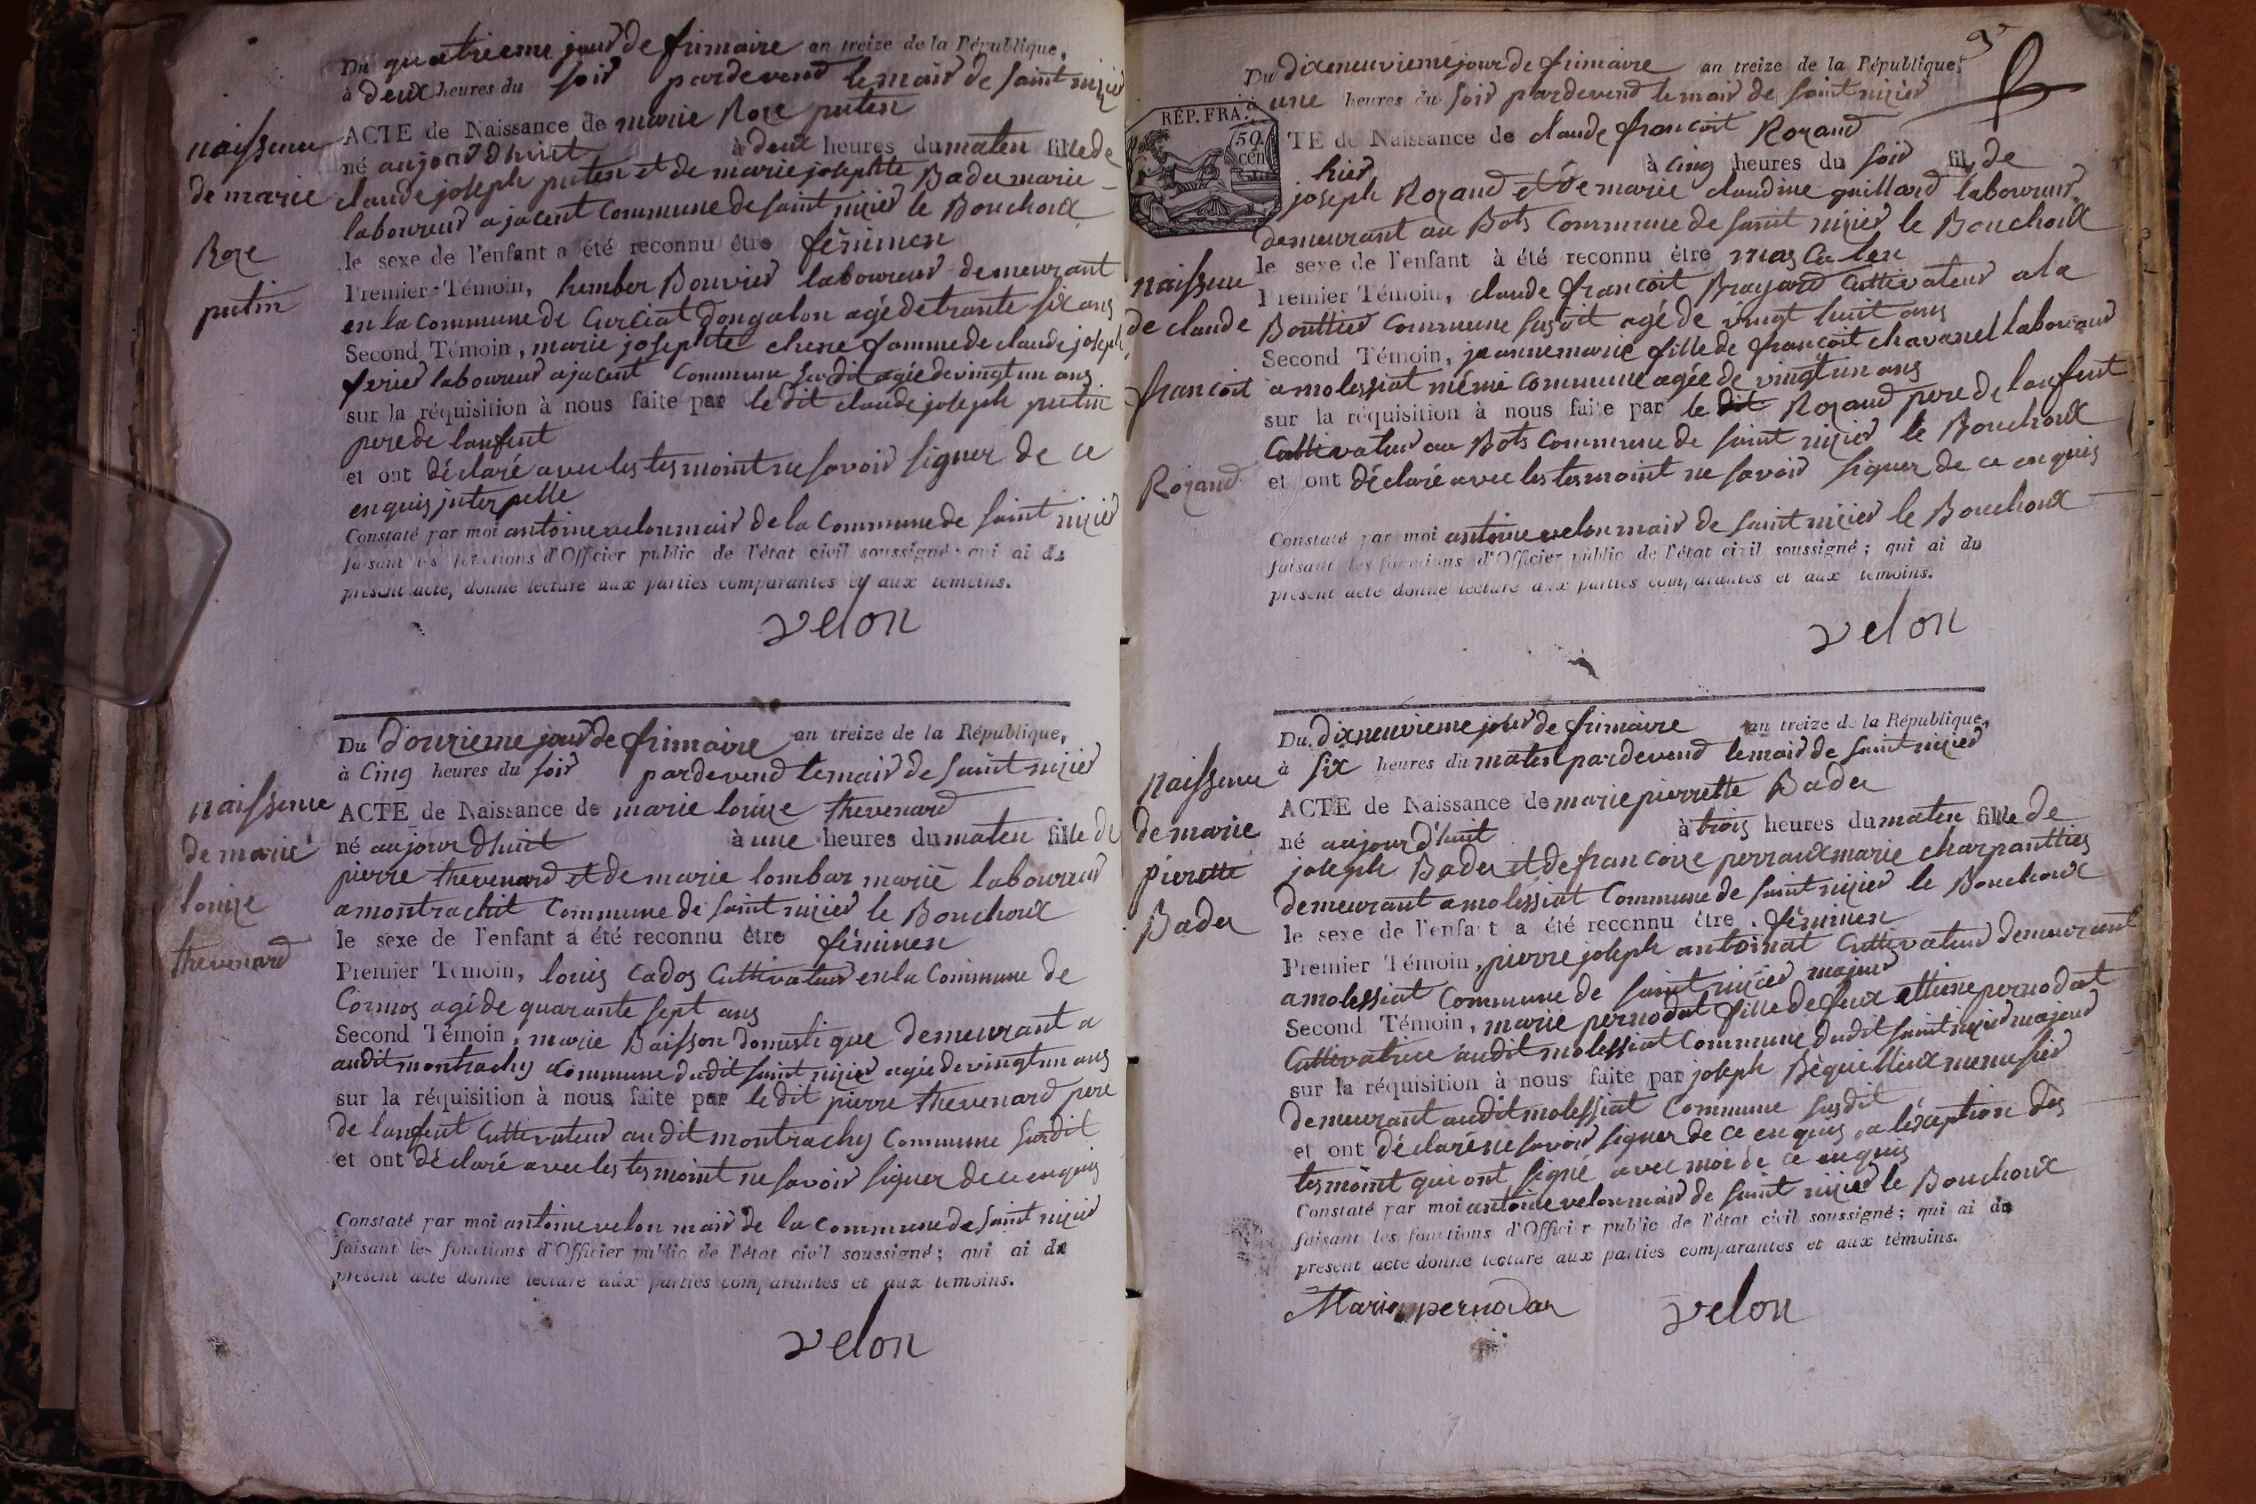 Du quatrieme jour de frimaire an treize de la République,
à deux heures du soir pardevend le mair de saint nizier
ACTE de Naissance de marie Roze putin
né aujourdhuit à deux heures du maten fille de
claude joseph putin et de marie josephte Bader marie
laboureur a jacent commune de saint nizier le Bouchoux
le sexe de l'enfant a été reconnu être féminen
Premier Témoin, humber Bouvier laboureur demeurant
en la commune de Curciat dongalon agé de trante six ans
Second Témoin, marie josephte chene famme de claude joseph
ferier laboureur a jacent commune susdit agée de vingt un ans
sur la réquisition à nous faite par le dit claude joseph putin
pere de lanfent
et ont déclaré avec les tesmoint ne savoir signer de ce
enquis interpelle
Constaté par moi antoine velon mair de la commune de saint nizier
faisant les fonctions d'Officier public de l'état civil soussigné; qui ai du
présent acte, donné lecture aux parties comparantes et aux témoins.
velon
naissence
de marie
Roze
putin
Du Douzieme jour de frimaire an treize de la République,
à Cinq heures du soir pardevend le mair de saint nizier
ACTE de Naissance de marie louize thevenard
né aujourdhuit à une heures du maten fille de
pierre thevenard et de marie lombar marié laboureur
a montrachit commune de saint nizier le Bouchoux
le sexe de l'enfant a été reconnu être féminen
Premier Témoin, louis cados Cultivateur en la Commune de
Cormos agé de quarante sept ans
Second Témoin, marie Baisson domestique demeurant a
audit montrachy commune dudit saint nizier agée de vingt un ans
sur la réquisition à nous faite par le dit pierre thevenard pere
de lanfent Cultivateur audit montrachy commune susdit
et ont déclaré avec les tesmoint ne savoir signer de ce enquis
Constaté par moi antoine velon mair de la commune de saint nizier
faisant les fonctions d'Officier public de l'état civil soussigné; qui ai du
présent acte donné lecture aux parties comparantes et aux témoins.
velon
naissence
de marie
louize
thevenard
Du dixneuvieme jour de frimaire an treize de la République,
à une heures du soir pardevend le mair de saint nizier
RÉP. FRA.
50.
cen
TE de Naissance de claude francoit Rozand
hier à Cinq heures du soir fils de
joseph Rozand et de marie claudine guillard laboureur
demeurant au Bots commune de saint nizier le Bouchoux
le sexe de l'enfant à été reconnu être mascalen
Premier Témoin, claude francoit Brayard Cultivateur a la
Bouttier commune susdit agé de vingt huit ans
Second Témoin, jeannemarie fille de francoit chavanel laboureur
a molessiat même commune agée de vingt un ans
sur la réquisition à nous faite par le dit Rozand pere de lanfent
Cultivateur au Bots commune de saint nizier le Bouchoux
et ont déclaré avec les tesmoint ne savoir signer de ce enquis
Constaté par moi antoine velon mair de saint nizier le Bouchoux
faisant les fonctions d'Officier public de l'état civil soussigné; qui ai du
présent acte donné lecture aux parties comparantes et aux témoins.
velon
naissence
de claude
francoit
Rozand
Du dixneuvieme jour de frimaire an treize de la République,
à six heures du maten pardevend le mair de saint nizier
ACTE de Naissance de marie pierrette Bader
né aujourd'huit à trois heures du maten fille de
joseph Bader et de francoize perraux marie charpanttier
demeurant a molessiat commune de saint nizier le Bouchoux
le sexe de l'enfant a été reconnu être féminen
Premier Témoin, pierre joseph antoinat Cultivateur demeurant
a molessiat commune de saint nizier majeur
Second Témoin, marie pernodat fille de feux ettiene pernodat
Cultivatrice audit molessiat commune dudit saint nizier majeur
sur la réquisition à nous faite par joseph Béquilleux menusier
demeurant audit molessiat commune susdit
et ont déclaré ne savoir signer de ce enquis a léxception dès
tesmoint qui ont signé avec moi de ce enquis
Constaté par moi antoine velon mair de saint nizier le Bouchoux
faisant les fonctions d'Officier public de l'état civil soussigné; qui ai du
présent acte donné lecture aux parties comparantes et aux témoins.
Marie pernodat velon
naissence
de marie
pierette
Bader